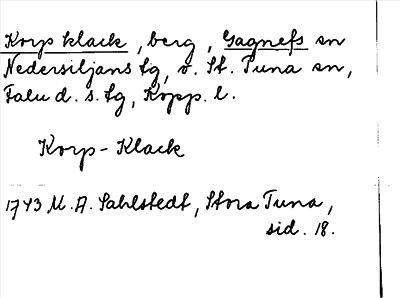 Korpklack, berg, Gagnefs sn
Nedersiljans tg, o. St. Tuna sn,
Falu d. s. tg, Kopp. l.
Korp-Klack
1743 M. A. Sahlstedt, Stora Tuna,
sid. 18.